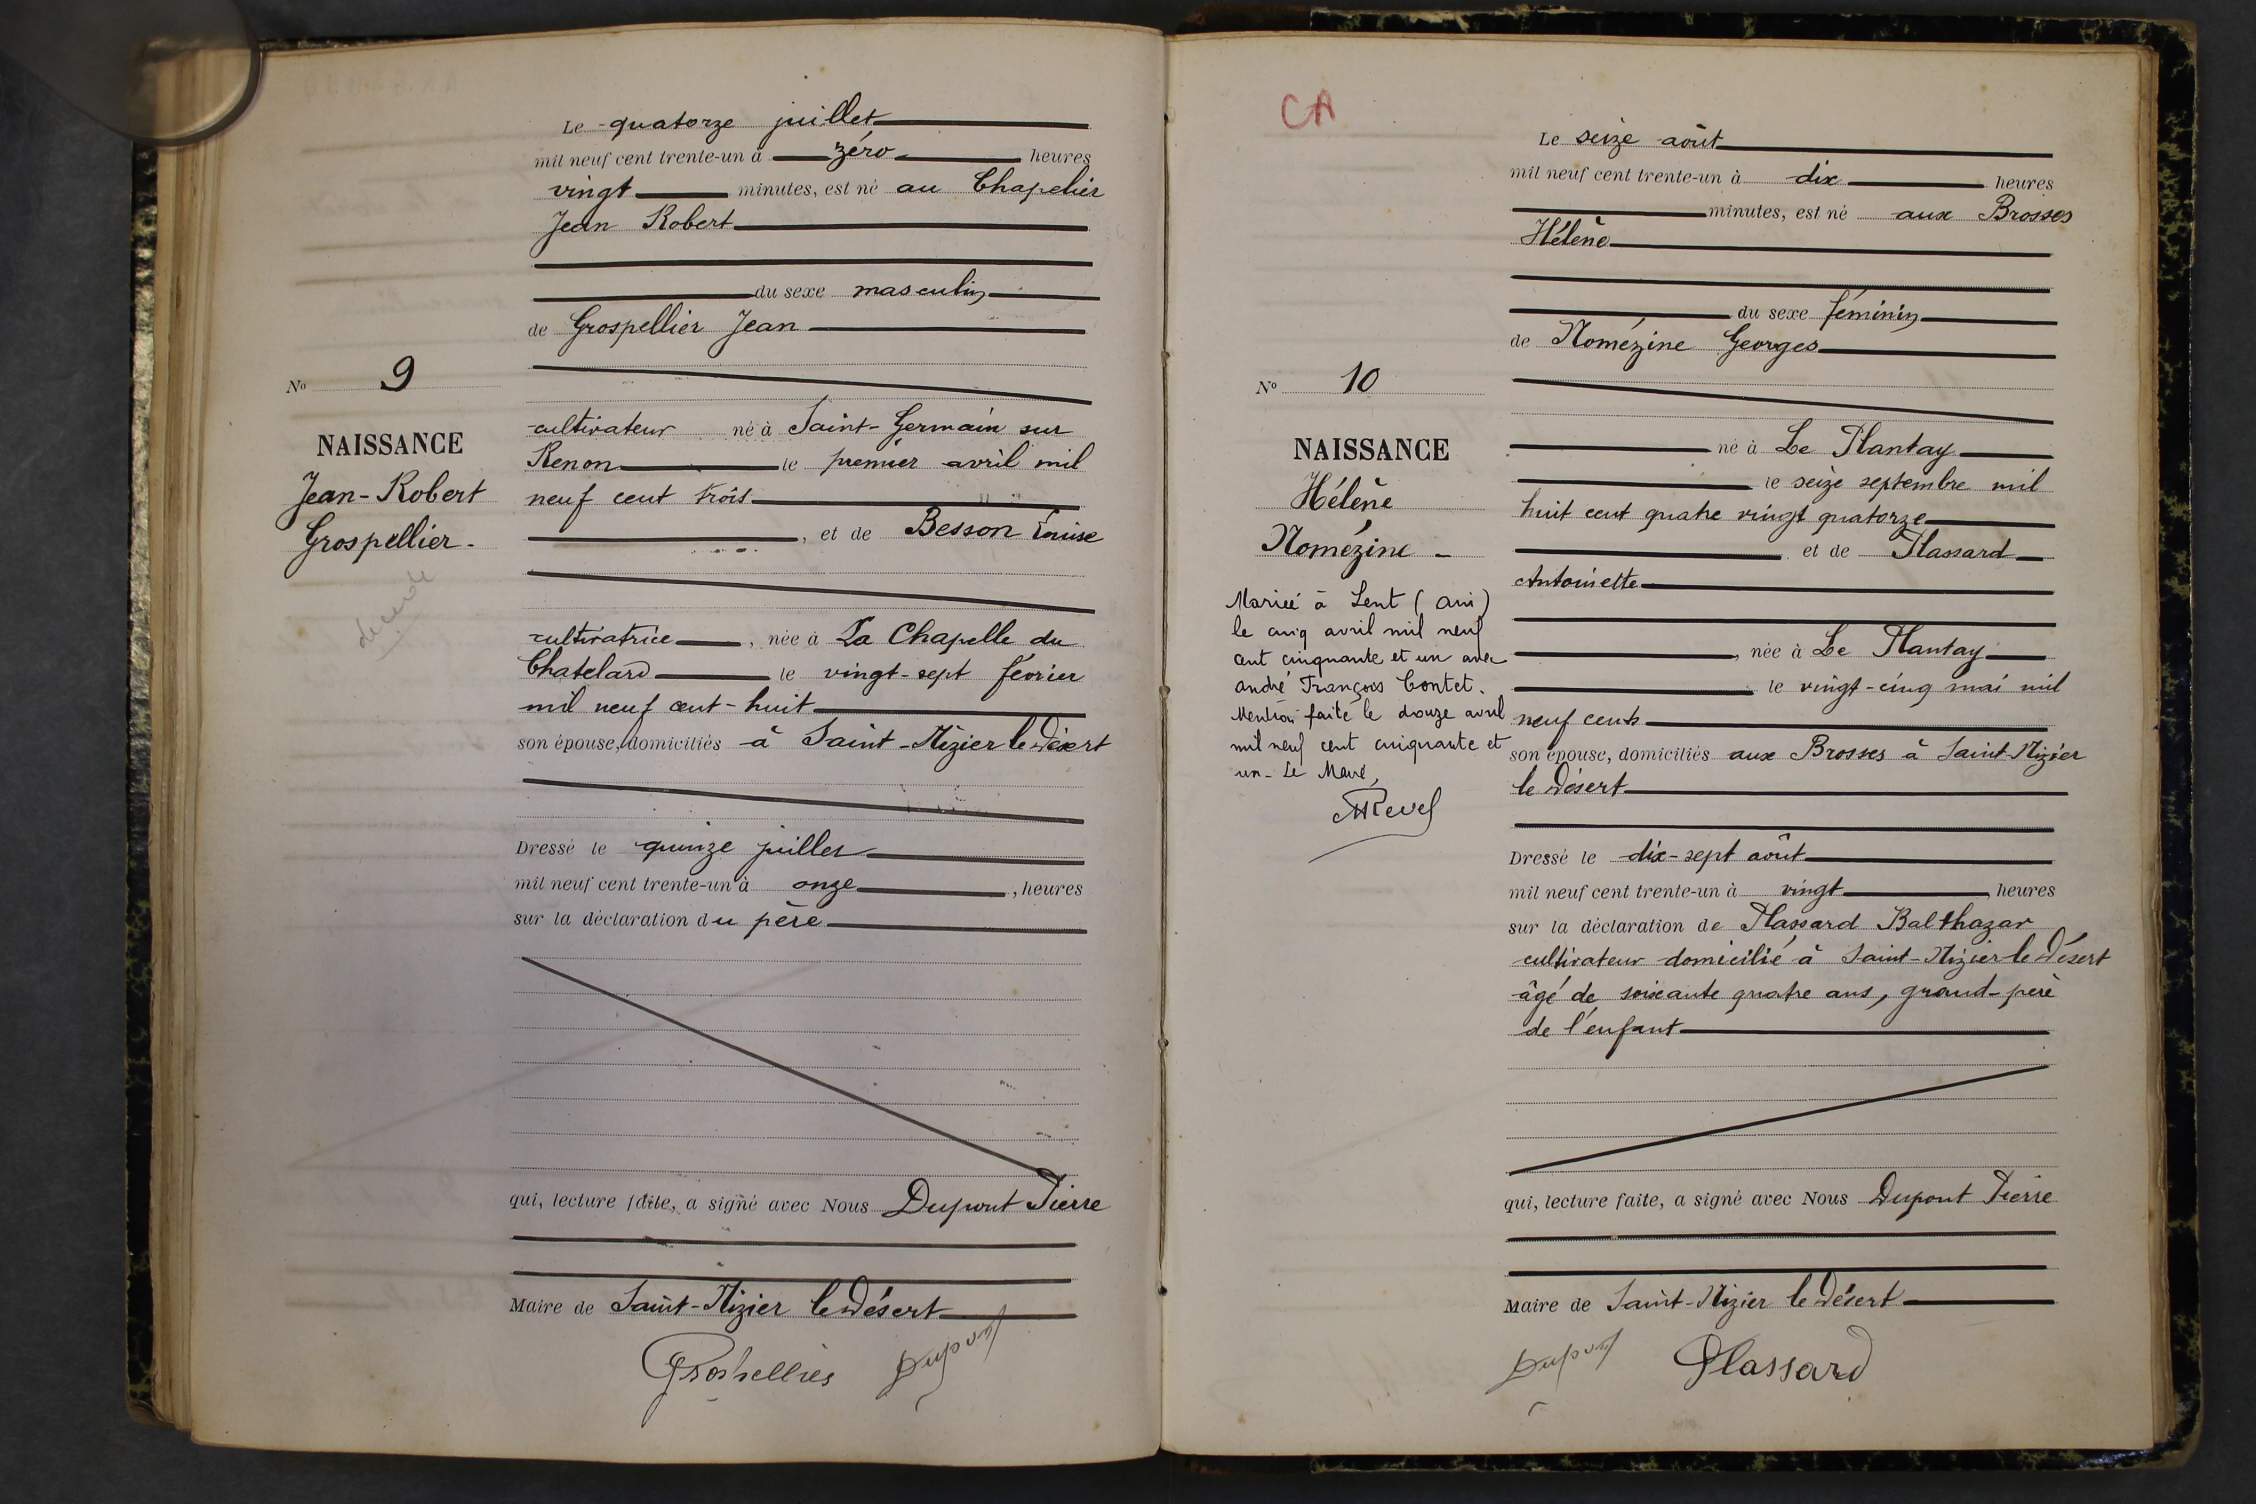 Le quatorze juillet
mil neuf cent trente-un à zéro heures
vingt minutes, est né au Chapelier
Jean Robert
du sexe masculin
de Grospellier Jean
cultivateur né à Saint-Germain sur
Renon le premier avril mil
neuf cent trois
, et de Besson Louise
cultivatrice , née à La Chapelle du
Chatelard le vingt-sept février
mil neuf cent-huit
son épouse, domiciliés à Saint-Nizier le Désert
Dressé le quinze juillet
mil neuf cent trente-un à onze , heures
sur la déclaration du père
qui, lecture faite, a signé avec Nous Dupont Pierre
Maire de Saint-Nizier le Désert
Grospellier Dupont
No 9
NAISSANCE
Jean-Robert
Grospellier.
CA
Le seize août
mil neuf cent trente-un à dix heures
minutes, est né aux Brosses
Hélène
du sexe féminin
de Nomézine Georges
né à Le Plantay
le seize septembre mil
huit cent quatre vingt quatorze
et de Plassard
Antoinette
, née à Le Plantay
le vingt-cinq mai mil
neuf cents
son épouse, domiciliés aux Brosses à Saint-Nizier
le Désert
Dressé le dix-sept août
mil neuf cent trente-un à vingt heures
sur la déclaration de Plassard Balthazar
cultivateur domicilié à Saint-Nizier le Désert
âgé de soixante quatre ans, grand-père
de l'enfant
qui, lecture faite, a signé avec Nous Dupont Pierre
Maire de Saint-Nizier le Désert
Dupont Plassard
No 10
NAISSANCE
Hélène
Nomézine -
Mariée à Lent (Ain)
le cinq avril mil neuf
cent cinquante et un avec
André François Contet.
Mention faite le douze avril
mil neuf cent cinquante et
un - Le Maire,
Revel